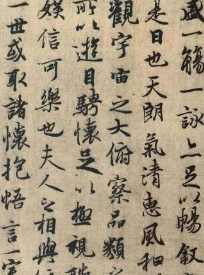 盛一觴一詠亦足以暢敘
是日也天朗氣清惠風和
觀宇宙之大俯察品類
所以遊目騁懷足以極視聽
娛信可樂也夫人之相與
一世或取諸懷抱悟言一室